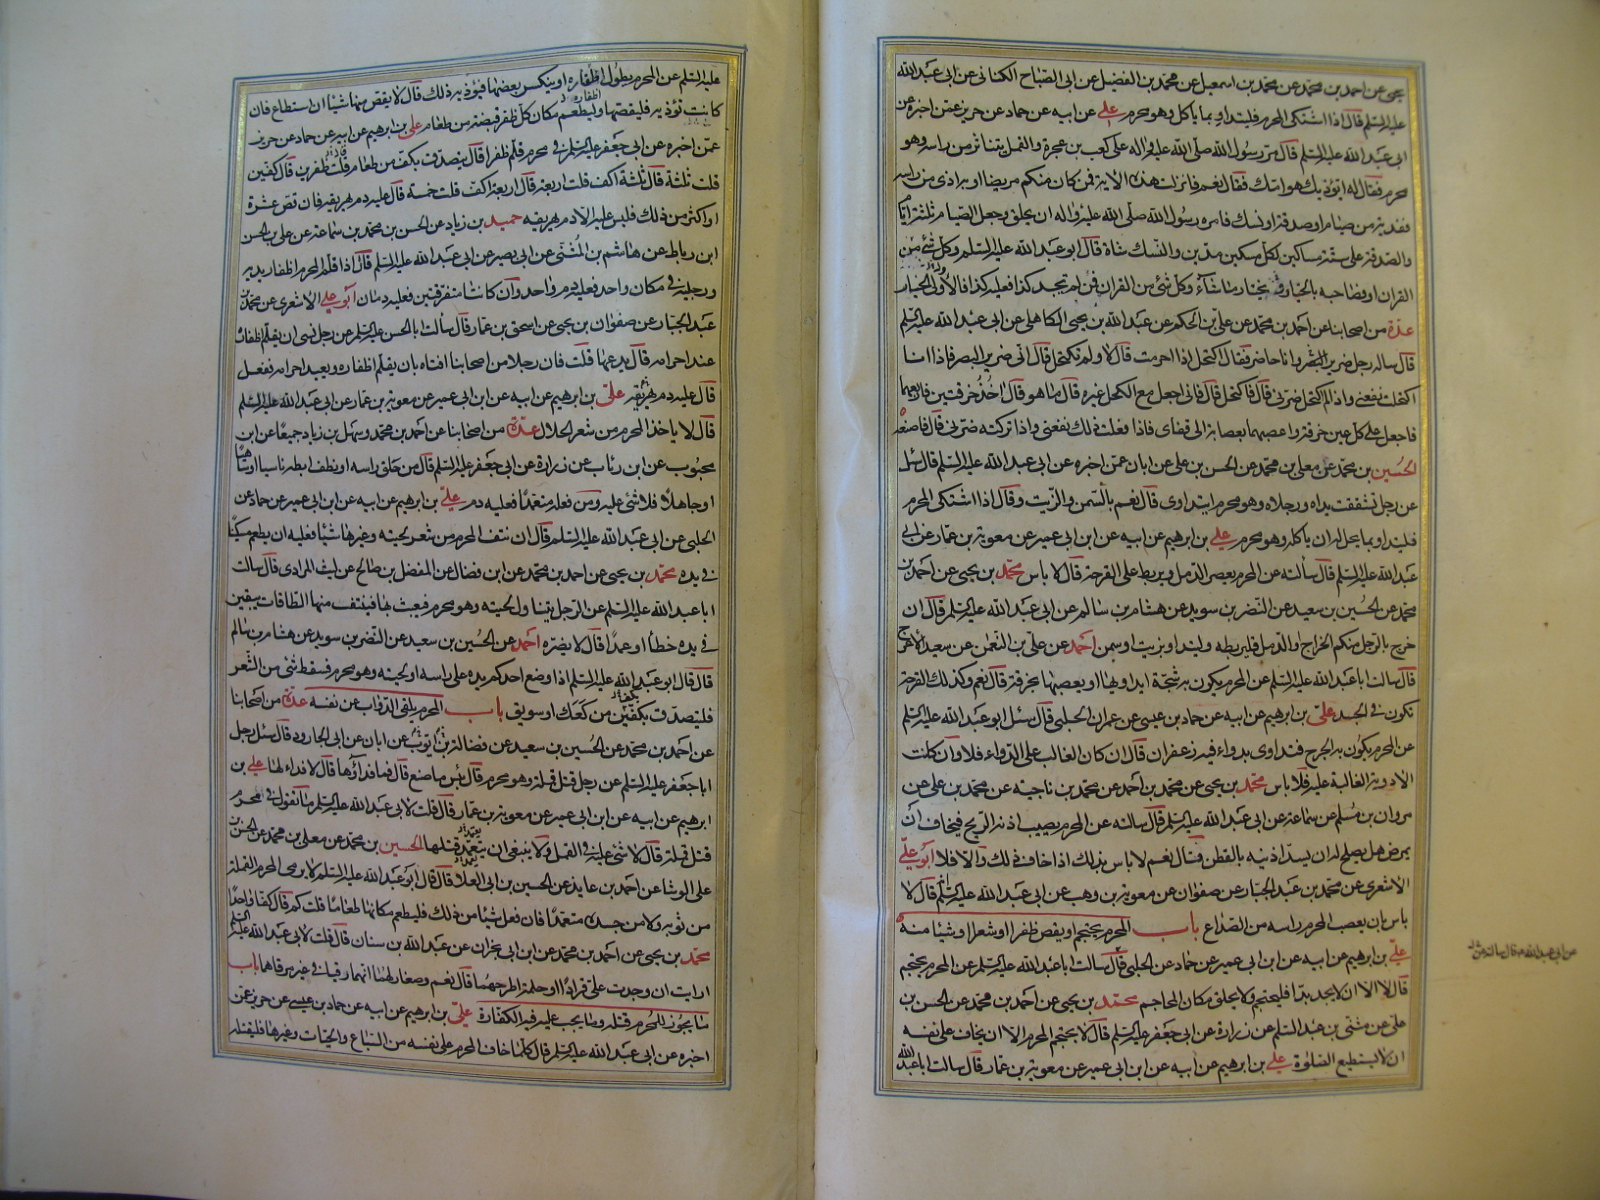 يحيى عن احمد بن محمد عن محمد بن اسمعيل عن محمد بن الفضيل عن ابى الصباح الكنانى عن ابى عبد الله
عليه السلم قال اذا اشتكى المحرم فليتداو بما ياكل وهو محرم على عن ابيه عن حماد عن حريز عمن اخبره عن
ابى عبد الله عليه السلم قال مر رسول الله صلى الله عليه واله على كعب بن عجرة والقمل يتناثر من راسه وهو
محرم فقال له اتؤذيك هوامك فقال نعم فانزلت هذه الاية فمن كان منكم مريضا او به اذى من راسه
ففدية من صيام او صدقة او نسك فامره رسول الله صلى الله عليه واله ان يحلق وجعل الصيام ثلثة ايام
والصدقة على ستة مساكين لكل مسكين مدين والنسك شاة قال ابو عبد الله عليه السلم وكل شئ من
القران او فصاحبه بالخيار يختار ما شاء وكل شئ من القران فمن لم يجد كذا فعليه كذا فالاولى الخيار
عدة من اصحابنا عن احمد بن محمد عن على بن الحكم عن عبد الله بن يحيى الكاهلى عن ابى عبد الله عليه السلم
قال ساله رجل ضرير البصر وانا حاضر فقال اكتحل اذا احرمت قال لا ولم تكتحل قال انى ضرير البصر فاذا انا
اكتحلت نفعنى واذا لم اكتحل ضرنى قال فاكتحل قال فانى اجعل مع الكحل غيره قال ما هو قال اخذ خرقتين فاربعهما
فاجعل على كل عين خرقة واعصبهما بعصابة الى قفاى فاذا فعلت ذلك نفعنى واذا تركته ضرنى قال فاصنعه
الحسين بن محمد عن معلى بن محمد عن الحسن بن على عن ابان عمن اخبره عن ابى عبد الله عليه السلم قال سئل
عن رجل تشققت يداه ورجلاه وهو محرم ايتداوى قال نعم بالسمن والزيت وقال اذا اشتكى المحرم
فليتداو بما يحل له ان ياكله وهو محرم على بن ابرهيم عن ابيه عن ابن ابى عمير عن معوية بن عمار عن ابى
عبد الله عليه السلم قال سالته عن المحرم يعصر الدمل ويربط على القرحة قال لا باس محمد بن يحيى عن احمد بن
محمد عن الحسين بن سعيد عن النضر بن سويد عن هشام بن سالم عن ابى عبد الله عليه السلم قال ان
خرج بالرجل منكم الخراج والدمل فليربطه وليتداو بزيت او سمن احمد عن على بن النعمن عن سعيد الاعرج
قال سالت ابا عبد الله عليه السلم عن المحرم يكون به شجة ايداويها او يعصبها بخرقة قال نعم وكذلك القرحة
تكون فى الجسد على بن ابرهيم عن ابيه عن حماد بن عيسى عن عمران الحلبى قال سئل ابو عبد الله عليه السلم
عن المحرم يكون به الجرح فيتداوى بدواء فيه زعفران قال ان كان الغالب على الدواء فلا وان كانت
الادوية الغالبة عليه فلا باس محمد بن يحيى عن محمد بن احمد عن محمد بن ناجية عن محمد بن على عن
مروان بن مسلم عن سماعة عن ابى عبد الله عليه السلم قال سالته عن المحرم يصيب اذنه الريح فيخاف ان
يمرض هل يصلح له ان يسد اذنيه بالقطن وقال نعم لا باس بذلك اذا خاف ذلك والا فلا ابو على
الاشعرى عن محمد بن عبد الجبار عن صفوان عن معوية بن وهب عن ابى عبد الله عليه السلم قال لا
باس بان يعصب المحرم راسه من الصداع باب المحرم يحتجم او يقص ظفرا او شعرا او شيئا منه
على بن ابرهيم عن ابيه عن ابن ابى عمير عن حماد عن الحلبى قال سالت ابا عبد الله عليه السلم عن المحرم يحتجم
قال لا الا ان لا يجد بدا فليحتجم ولا يحلق مكان المحاجم محمد بن يحيى عن احمد بن محمد عن الحسن بن
على عن مثنى بن عبد السلم عن زرارة عن ابى جعفر عليه السلم قال لا يحتجم المحرم الا ان يخاف على نفسه
ان لا يستطيع الصلوة على بن ابرهيم عن ابيه عن ابن ابى عمير عن معوية بن عمار قال سالت ابا عبد الله
عن ابى عبد الله قال سالته عن
عليه السلم عن المحرم يطول اظفاره او ينكسر بعضها فيؤذيه ذلك قال لا يقص منها شيئا ان استطاع فان
كانت تؤذيه فليقصها وليطعم مكان كل ظفر قبضة من طعام على بن ابرهيم عن ابيه عن حماد عن حريز
عمن اخبره عن ابى جعفر عليه السلم فى محرم قلم ظفرا قال يتصدق بكف من طعام قلت ظفرين قال كفين
قلت ثلثة قال ثلثة اكف قلت اربعة قال اربعة اكف قلت خمسة قال عليه دم يهريقه فان قص عشرة
او اكثر من ذلك فليس عليه الا دم يهريقه حميد بن زياد عن الحسن بن محمد بن سماعة عن على بن الحسن
ابن رباط عن هاشم بن المثنى عن ابى بصير عن ابى عبد الله عليه السلم قال اذا قلم المحرم اظفار يديه
ورجليه فى مكان واحد فعليه دم واحد وان كانتا متفرقتين فعليه دمان ابو على الاشعرى عن محمد بن
عبد الجبار عن صفوان بن يحيى عن اسحق بن عمار قال سالت ابا الحسن عليه السلم عن رجل نسى ان يقلم اظفاره
عند احرامه قال يدعها قلت فان رجلا من اصحابنا افتاه بان يقلم اظفاره ويعيد احرامه ففعل
قال عليه دم يهريقه على بن ابرهيم عن ابيه عن ابن ابى عمير عن معوية بن عمار عن ابى عبد الله عليه السلم
قال لا ياخذ المحرم من شعر الحلال عدة من اصحابنا عن احمد بن محمد وسهل بن زياد جميعا عن ابن
محبوب عن ابن رئاب عن زرارة عن ابى جعفر عليه السلم قال من حلق راسه او نتف ابطه ناسيا او ساهيا
او جاهلا فلا شئ عليه ومن فعله متعمدا فعليه دم على بن ابرهيم عن ابيه عن ابن ابى عمير عن حماد عن
الحلبى عن ابى عبد الله عليه السلم قال ان نتف المحرم من شعر لحيته وغيرها شيئا فعليه ان يطعم مسكينا
فى يده محمد بن يحيى عن احمد بن محمد عن ابن فضال عن المفضل بن صالح عن ليث المرادى قال سالت
ابا عبد الله عليه السلم عن الرجل يتناول لحيته وهو محرم فيعبث بها فينتف منها الطاقات يبقين
فى يده خطأ او عمدا قال لا يضره احمد عن الحسين بن سعيد عن النضر بن سويد عن هشام بن سالم
قال قال ابو عبد الله عليه السلم اذا وضع احدكم يده على راسه او لحيته وهو محرم فسقط شئ من الشعر
فليتصدق بكفين من كعك او سويق باب المحرم يلقى الدواب عن نفسه عدة من اصحابنا
عن احمد بن محمد عن الحسين بن سعيد عن فضالة بن ايوب عن ابان عن ابى الجارود قال سئل رجل
ابا جعفر عليه السلم عن رجل قتل قملة وهو محرم قال بئس ما صنع قال فما فداؤها قال لا فداء لها على بن
ابرهيم عن ابيه عن ابن ابى عمير عن معوية بن عمار قال قلت لابى عبد الله عليه السلم ما تقول فى محرم
قتل قملة قال لا شئ عليه فى القمل ولا ينبغى ان يتعمد قتلها الحسين بن محمد عن معلى بن محمد عن الحسن بن
على الوشا عن احمد بن عايذ عن الحسين بن ابى العلا قال قال ابو عبد الله عليه السلم لا يرمى المحرم القملة
من ثوبه ولا من جسده متعمدا فان فعل شيئا من ذلك فليطعم مكانها طعاما قلت كم قال كفا واحدا
محمد بن يحيى عن احمد بن محمد عن ابن ابى نجران عن عبد الله بن سنان قال قلت لابى عبد الله عليه السلم
ارايت ان وجدت على قرادا او حلمة اطرحهما قال نعم وصغار لهما انهما رقيا فى غير مرقاهما باب
ما يجوز للمحرم قتله وما يجب عليه فيه الكفارة على بن ابرهيم عن ابيه عن حماد بن عيسى عن حريز عمن
اخبره عن ابى عبد الله عليه السلم قال كلما خاف المحرم على نفسه من السباع والحيات وغيرها فليقتله